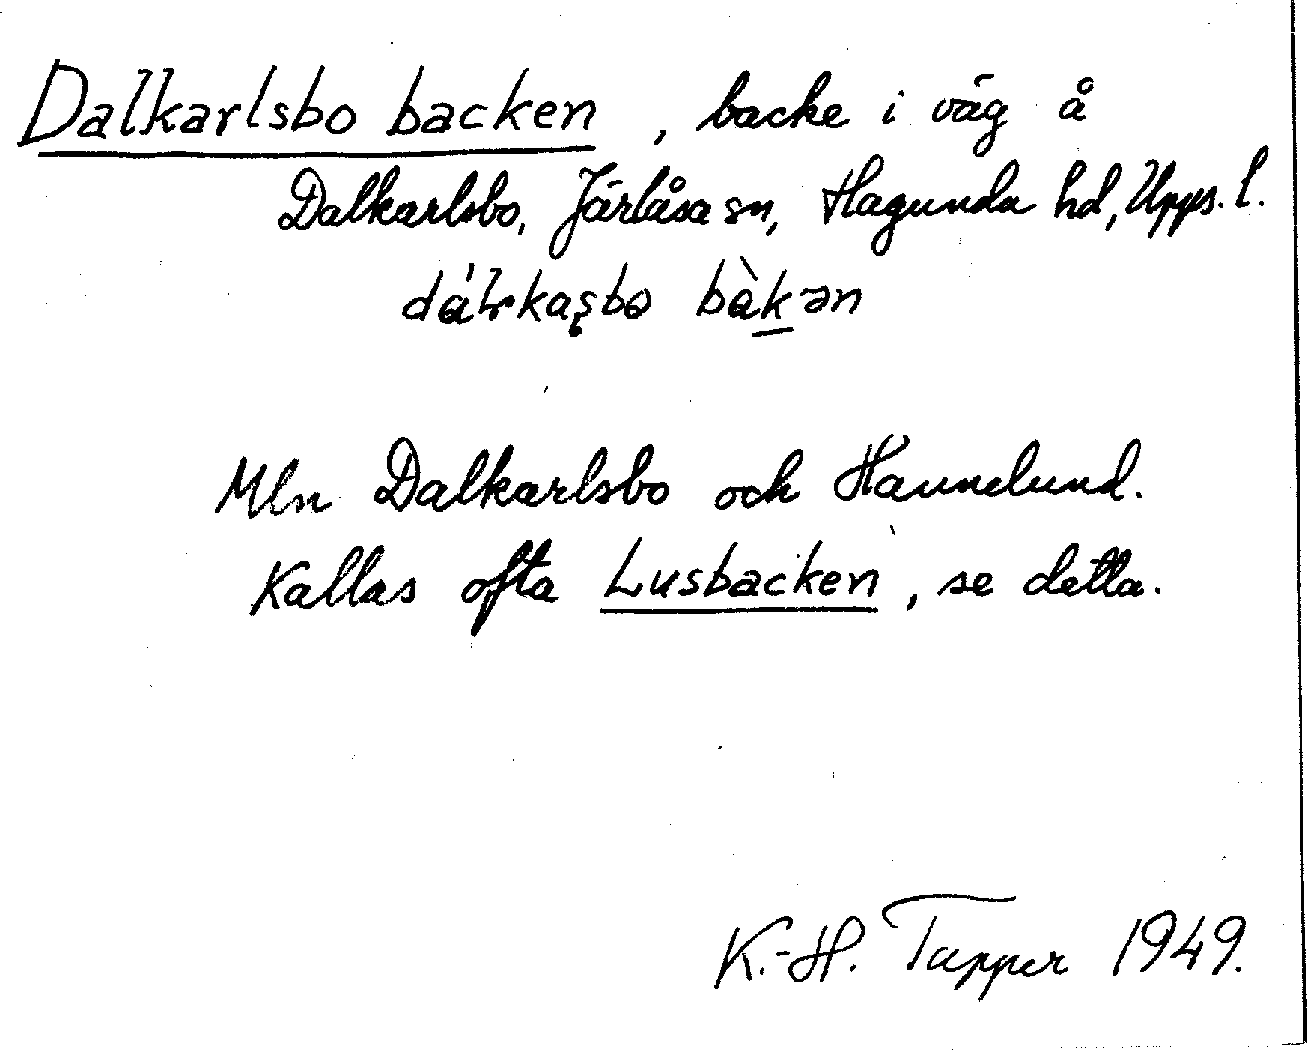 Dalkarlsbo backen, backe i väg å
Dalkarlsbo, Järlåsa sn, Hagunda hd, Upps. l.
bàkən
Mln Dalkarlsbo och Hannelund.
Kallas ofta Lusbacken, se detta.
K.-H. Tapper 1949.